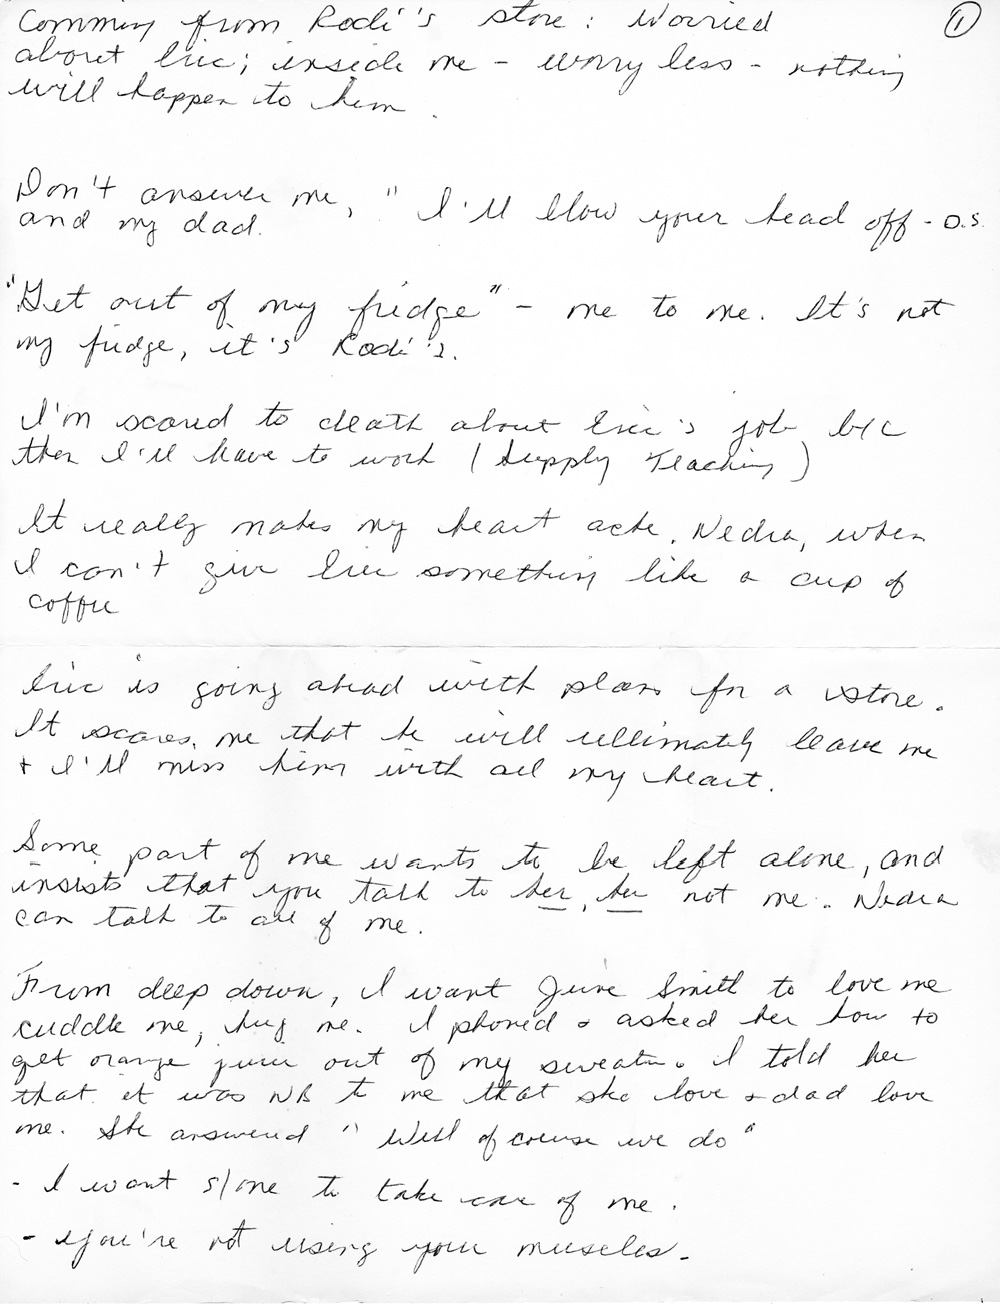 Comming from Rodi's store: Worried ①
about Eric; inside me - worry less - nothing
will happen to him.
Don't answer me, " I'll blow your head off - O.S.
and my dad.
"Get out of my fridge" - me to me. It's not
my fridge, it's Rodi's.
I'm scared to death about Eric's job b/c
then I'll have to work (Supply Teaching)
It really makes my heart ache, Nedra, when
I can't give Eric something like a cup of
coffee
Eric is going ahead with plans for a store.
It scares me that he will ultimately leave me
+ I'll miss him with all my heart.
Some part of me wants to be left alone, and
insists that you talk to her, her not me. Nedra
can talk to all of me.
From deep down, I want June Smith to love me
cuddle me, hug me. I phoned & asked her how to
get orange juice out of my sweater. I told her
that it was NB to me that she love & dad love
me. She answered " Well of course we do"
- I want s/one to take care of me.
- You're not using your muscles.